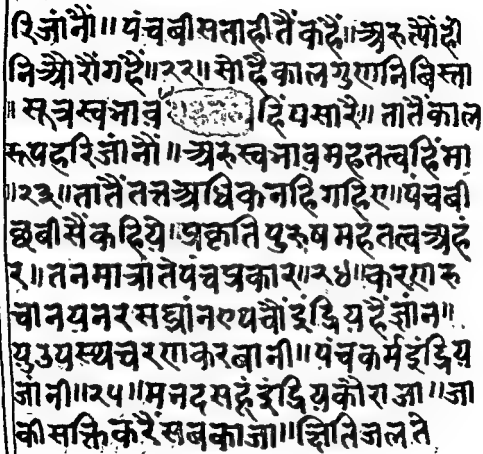 रिजांनौं॥ पंचबीसताहीतैं कहैं॥ अरु त्यौंही
नि औरौं गहैं॥२२॥ सोहै काल गुणनि बिस्ता
॥ सूत्र स्वभाव हिं पसारै॥ तातैं काल
रूप हरि जांनौं॥ अरु स्वभाव महतत्वहिं मा
॥२३॥ तातैं तत्त अधिक नहि गहिए॥ पंचबी
छबीसैं कहिये॥ प्रकृति पुरुष महतत्व अहं
र॥ तनमात्रा ते पंच प्रकार॥२४॥ करण रु
चा नयन रस घ्रांन ए पचौं इंद्रिय हैं ज्ञांन॥
यु उपस्थ चरण कर बानी॥ पंच कर्म इंद्रिय
जांनी॥२५॥ मन दसहूं इंद्रिय कौ राजा॥ जा
की सक्ति करैं सब काजा॥ क्षिति जल ते